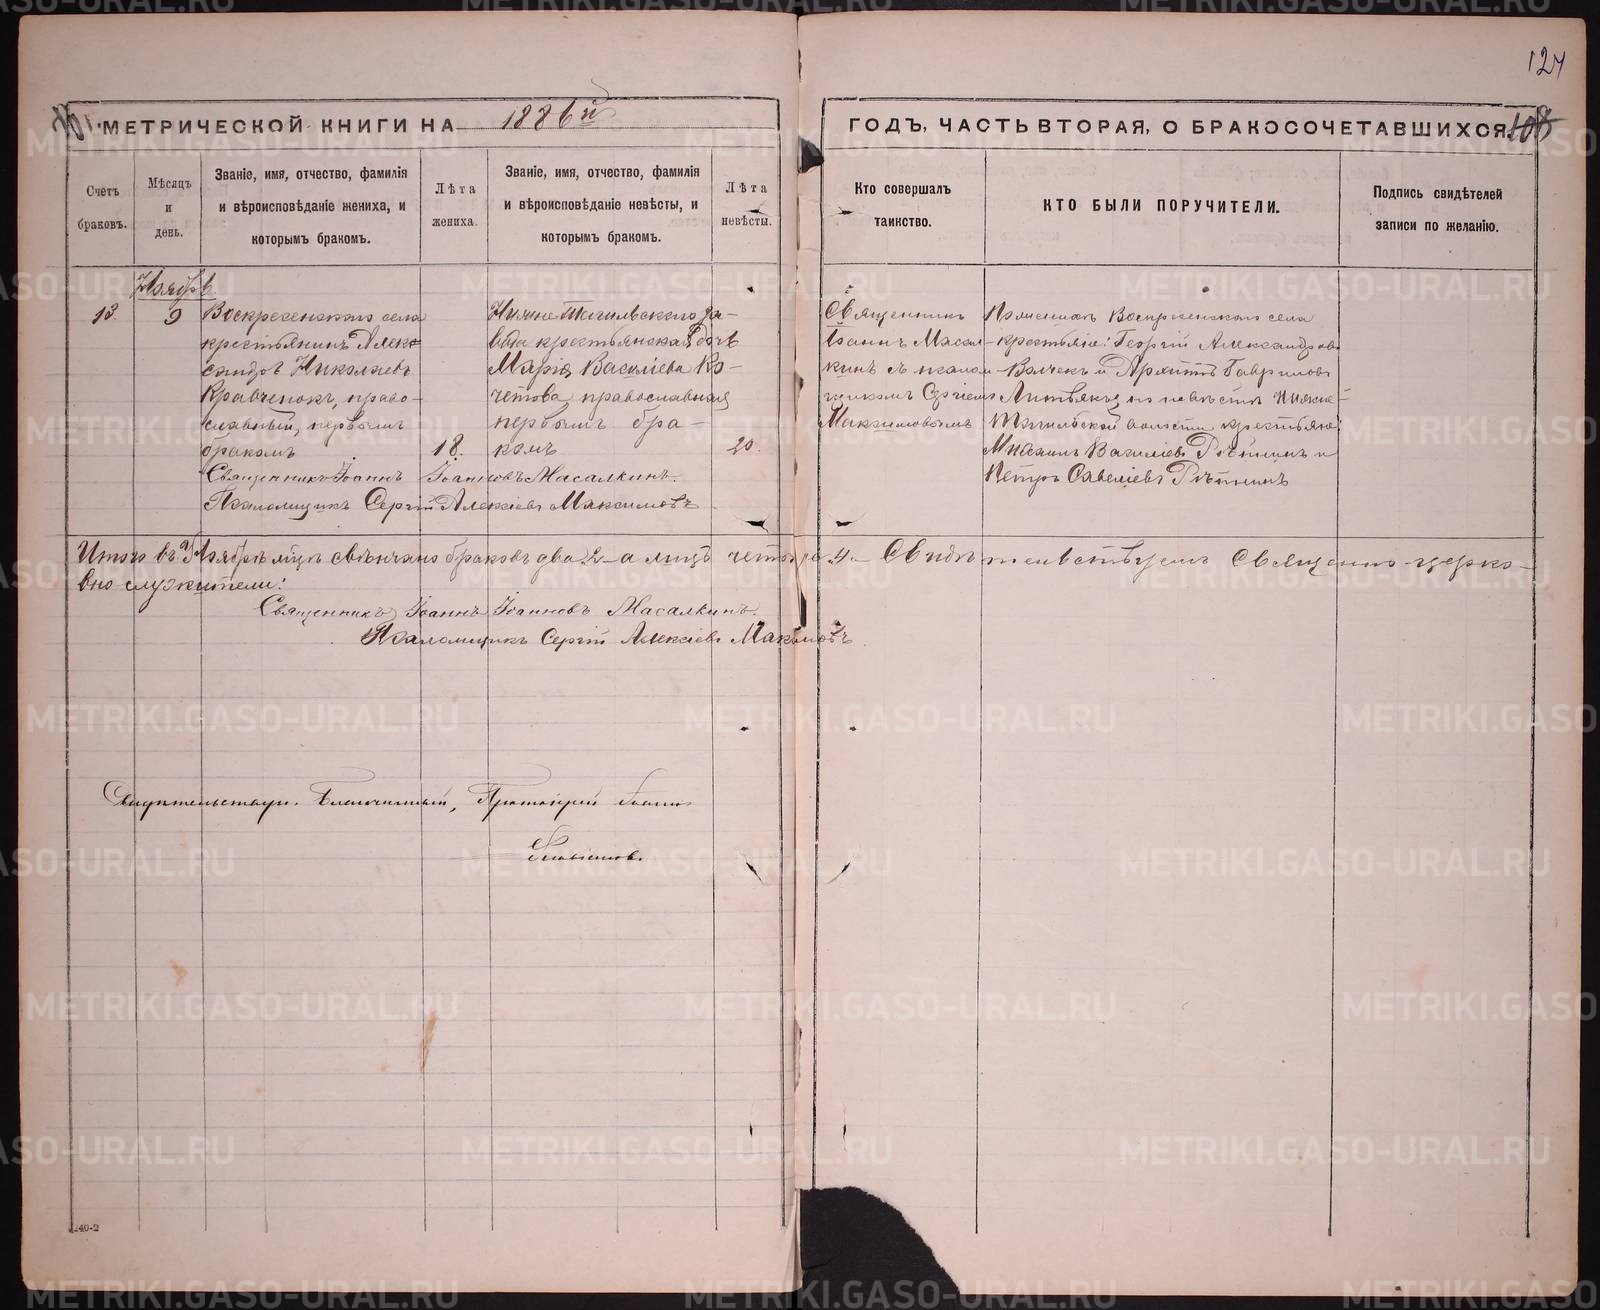 124
МЕТРИЧЕСКОЙ КНИГИ НА 1886й
ГОДЪ, ЧАСТЬ ВТОРАЯ, О БРАКОСОЧЕТАВШИХСЯ. 108
Счетъ браковъ.
Мѣсяцъ и день.
Званіе, имя, отчество, фамилія
и вѣроисповѣданіе жениха, и
которымъ бракомъ.
Лѣта жениха.
Званіе, имя, отчество, фамилія
и вѣроисповѣданіе невѣсты, и
которымъ бракомъ.
Лѣта невѣсты.
Кто совершалъ
таинство.
КТО БЫЛИ ПОРУЧИТЕЛИ.
Подпись свидѣтелей
записи по желанію.
Ноябрь
13. 9
Воскресенскаго села
крестьянинъ Алек-
сандръ Николаевъ
Кравченокъ, право-
славный, первымъ
бракомъ
18.
Нижне-Тагильскаго за-
вода крестьянская дочь
Марія Василіева Ко-
четова православная
первымъ бра-
комъ
20.
Священникъ
Іоаннъ Масал-
кинъ съ псалом-
щикомъ Сергіемъ
Максимовымъ
По женихѣ Воскресенскаго села
крестьяне: Георгій Александровъ
Волчекъ и Гавриловъ
по невѣстѣ Нижне-
Тагильской волости крестьяне:
Михаилъ Василіевъ и
Петръ Савеліевъ
Священникъ Іоаннъ Іоанновъ Масалкинъ.
Псаломщикъ Сергій Алексіевъ Максимовъ
Итого въ Ноябрѣ мѣцѣ свѣнчано браковъ два 2-а лицъ четыре 4.— Свидѣтельствуемъ Священно-церко-
вно служители:
Священникъ Іоаннъ Іоанновъ Масалкинъ.
Псаломщикъ Сергій Алексіевъ Максимовъ.
Свидѣтельствую. Благочинный, Протоіерей Іоаннъ
40-2
METRIKI.GASO-URAL.RU